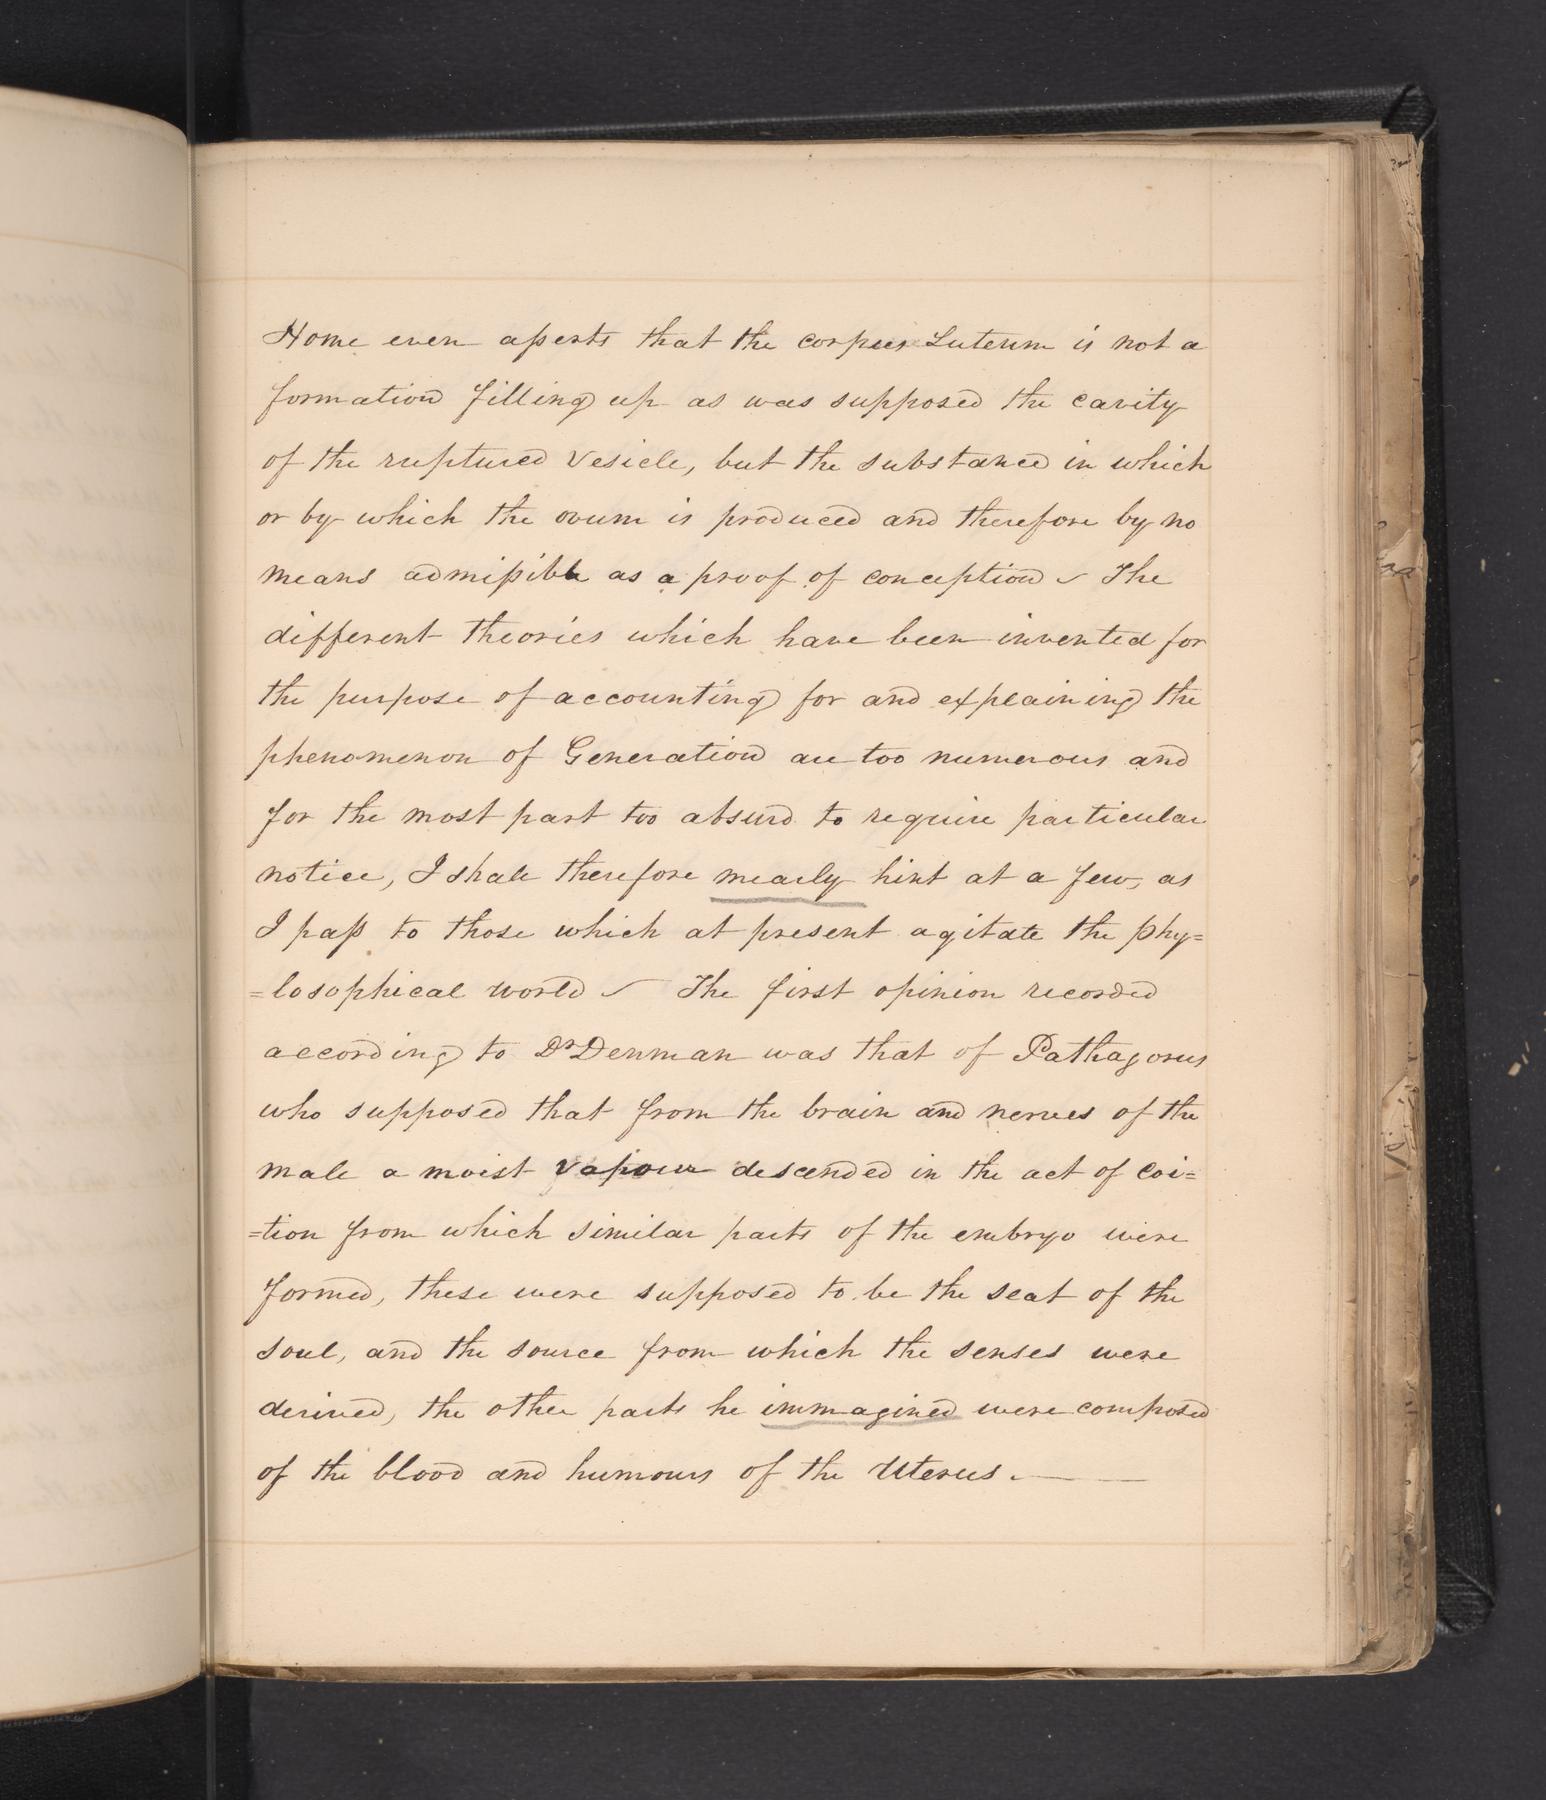 Home even aſserts that the corpus Luteum is not a
formation filling up as was supposed the cavity
of the ruptured vesicle, but the substance in which
or by which the ovum is produced and therefore by no
means admiſsible as a proof of conception ~ The
different theories which have been invented for
the purpose of accounting for and explaining the
phenomenon of Generation are too numerous and
for the most part too absurd to require particular
notice, I shall therefore mearly hint at a few, as
I paſs to those which at present agitate the phy=
=losophical world ~ The first opinion recorded
according to Dr Denman was that of Pathagorus
who supposed that from the brain and nerves of the
male a moist vapour descended in the act of coi=
=tion from which similar parts of the embryo were
formed, these were supposed to be the seat of the
soul, and the source from which the senses were
derived, the other parts he immagined were composed
of the blood and humours of the Uterus. ——